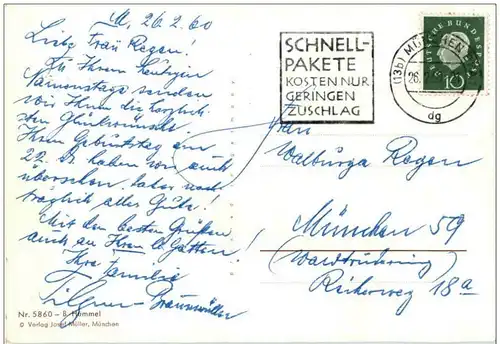 M, 26.2.60
Liebe Frau Regen!
Zu Ihrem heutigen
Namenstage senden
wir Ihnen die herzlich-
sten Glückwünsche.
Ihren Geburtstag am
22. d. haben wir auch
übersehen, daher nach-
träglich alles Gute!
Mit den besten Grüßen
auch an Ihren lb. Gatten!
Ihre Familie
Braunmüller
Nr. 5860 – B. Hummel
© Verlag Josef Müller, München
SCHNELL-
PAKETE
KOSTEN NUR
GERINGEN
ZUSCHLAG
(13b) MÜNCHEN
26.
dg
DEUTSCHE BUNDESPOST
10
Frau
Walburga Regen
München 59
Waldtrudering
Reiherweg 18a